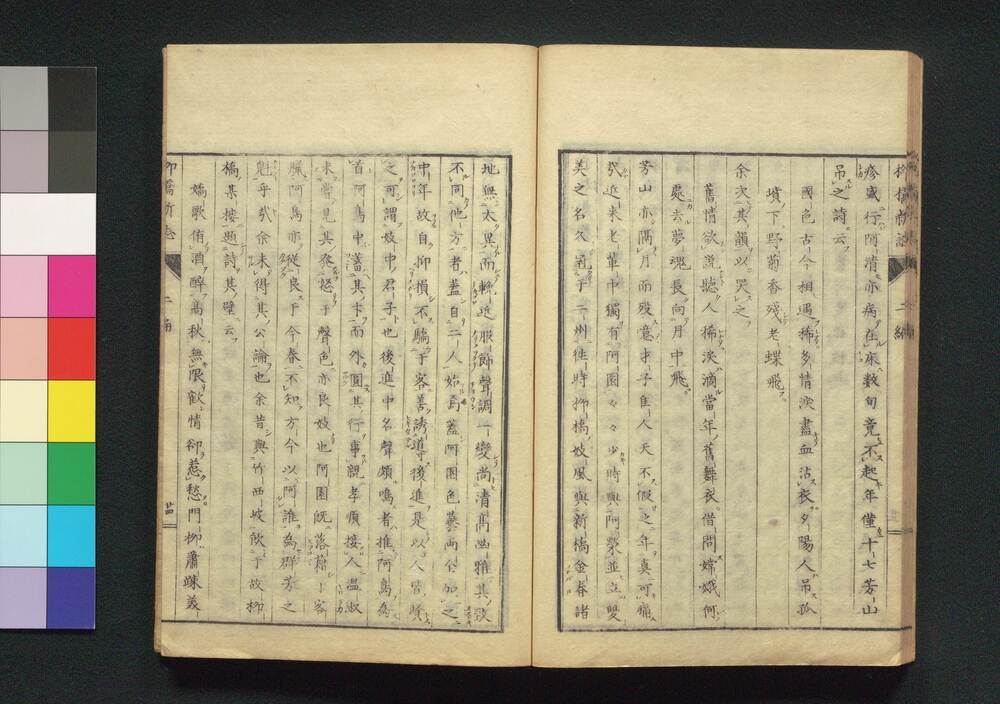 疹盛行阿清亦病在床數旬竟不起年僅十七芳山
吊之詩云
國色古今相遇稀多情淚盡血沾衣夕陽人吊孤
墳下野菊香殘老蝶飛
余次其韻以哭之
舊情欲說聽人稀淚滴當年舊舞衣借問嫦娥何
處去夢魂長向月中飛
芳山亦隔月而歿意才子隹人天不假之年真可痛
哭近來老輩中獨有阿園々々少時與阿榮並立雙
美之名久冠于二州徃時柳橋妓風與新橋金春諸
地無太異而輓近服飾聲調一變尚清高幽雅其致
不同他方者蓋自二人始焉蓋阿園色藝兩全加之
中年故自抑損不驕于客善誘導後進是以人皆賢
之可謂妓中君子也後進中名聲頗鳴者推阿萬為
首阿萬中藎其卞而外圓其行事親孝順接人溫淑
未嘗見其發怒于聲色亦良妓也阿園既落籍卜客
臘阿萬亦從良于今春不知方今以阿誰為群芳之
魁乎哉余未得其公論也余昔與竹西坡飲于故柳
橋某接題詩其壁云
嬌歌侑酒醉高秋無限歡情卻惹愁門柳蕭疎美
柳橋新誌
二編
廿四